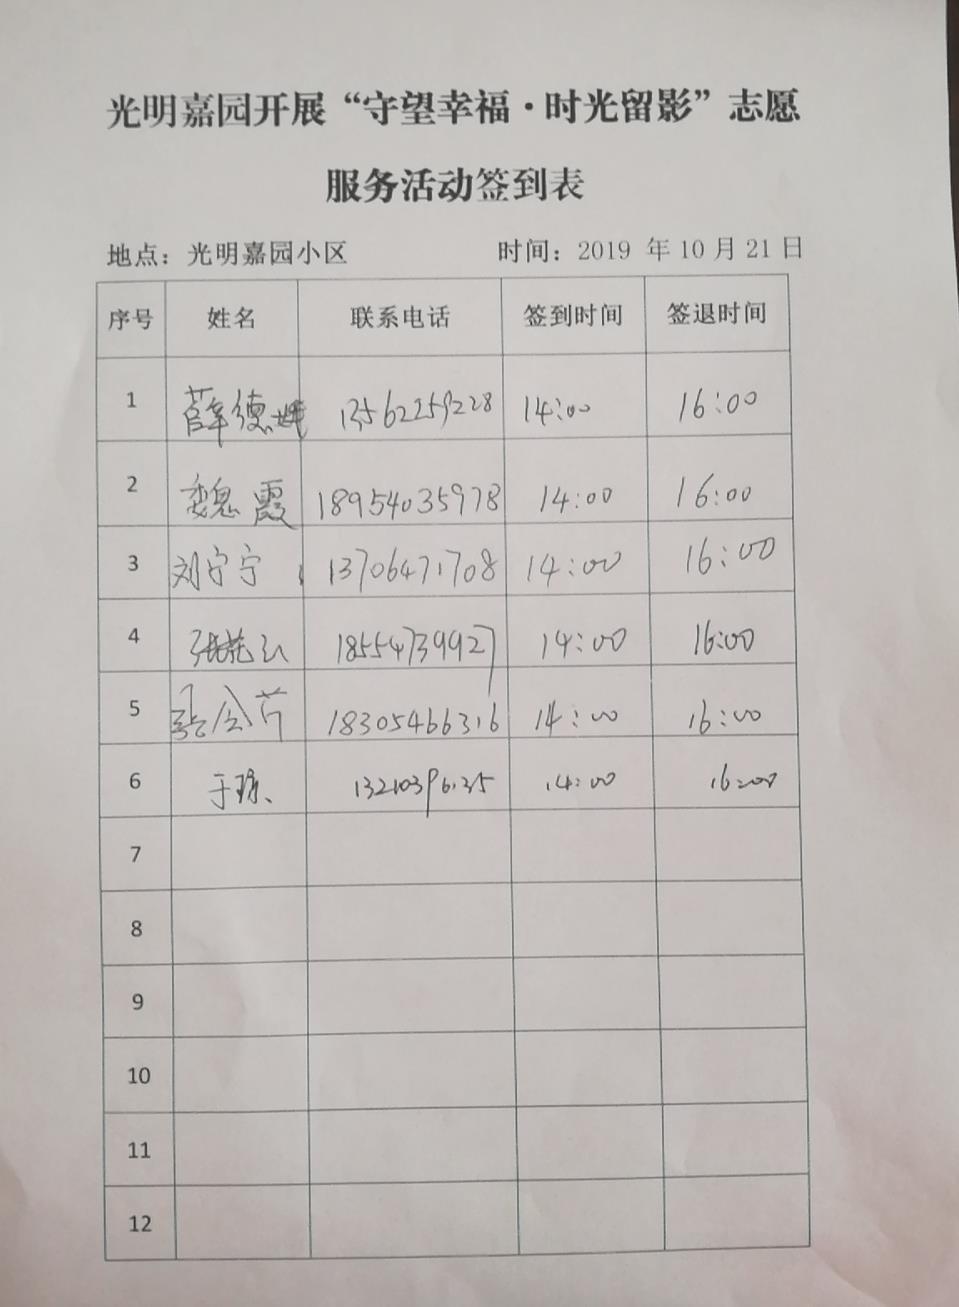 光明嘉园开展“守望幸福·时光留影”志愿
服务活动签到表
地点：光明嘉园小区 时间：2019 年 10 月 21 日
序号 姓名 联系电话 签到时间 签退时间
1 薛德 13562259228 14:00 16:00
2 魏霞 18954035978 14:00 16:00
3 刘宁宁 13706471708 14:00 16:00
4 张 18554739927 14:00 16:00
5 张会芹 18305466316 14:00 16:00
6 于琼 14:00 16:00
7
8
9
10
11
12